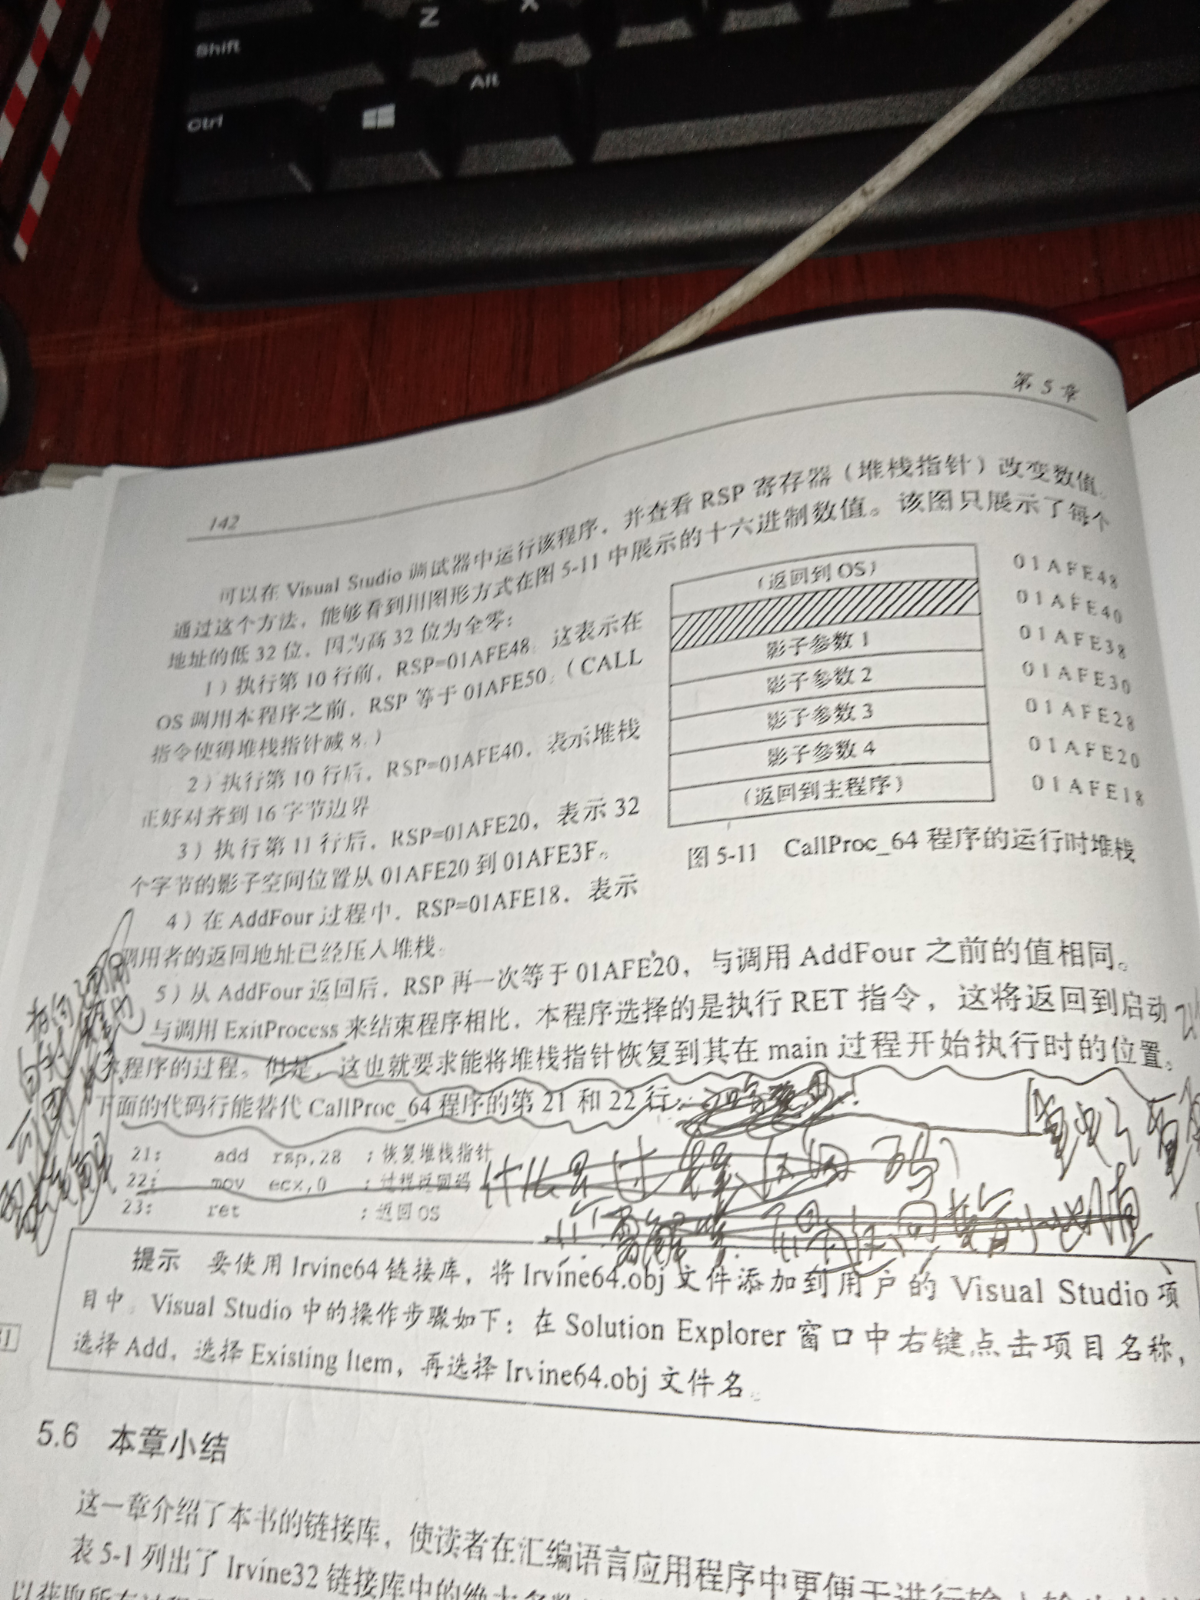 Z
X
Shift
Alt
Ctrl
第 5 章
142
可以在 Visual Studio 调试器中运行该程序，并查看 RSP 寄存器（堆栈指针）改变数值。
通过这个方法，能够看到用图形方式在图 5-11 中展示的十六进制数值。该图只展示了每个
地址的低 32 位，因为高 32 位为全零：
1）执行第 10 行前，RSP=01AFE48。这表示在
OS 调用本程序之前，RSP 等于 01AFE50。（CALL
指令使得堆栈指针减 8。）
2）执行第 10 行后，RSP=01AFE40，表示堆栈
正好对齐到 16 字节边界
3）执行第 11 行后，RSP=01AFE20，表示 32
个字节的影子空间位置从 01AFE20 到 01AFE3F。
4）在 AddFour 过程中，RSP=01AFE18，表示
调用者的返回地址已经压入堆栈。
（返回到 OS） 01AFE48
01AFE40
影子参数 1 01AFE38
影子参数 2 01AFE30
影子参数 3 01AFE28
影子参数 4 01AFE20
（返回到主程序） 01AFE18
图 5-11 CallProc_64 程序的运行时堆栈
5）从 AddFour 返回后，RSP 再一次等于 01AFE20，与调用 AddFour 之前的值相同。
与调用 ExitProcess 来结束程序相比，本程序选择的是执行 RET 指令，这将返回到启动
本程序的过程。但是，这也就要求能将堆栈指针恢复到其在 main 过程开始执行时的位置。
下面的代码行能替代 CallProc_64 程序的第 21 和 22 行：
21: add rsp,28 ；恢复堆栈指针
22: mov ecx,0 ；过程返回码
23: ret ；返回 OS
提示 要使用 Irvine64 链接库，将 Irvine64.obj 文件添加到用户的 Visual Studio 项
目中。Visual Studio 中的操作步骤如下：在 Solution Explorer 窗口中右键点击项目名称，
选择 Add，选择 Existing Item，再选择 Irvine64.obj 文件名。
5.6 本章小结
这一章介绍了本书的链接库，使读者在汇编语言应用程序中更便于进行输入输出
表 5-1 列出了 Irvine32 链接库中的绝大多数